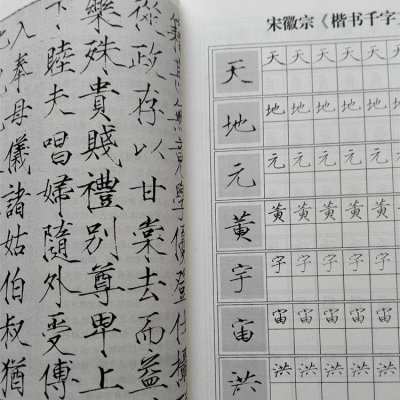 學優登仕攝
從政存以甘棠去而益
樂殊貴賤禮別尊卑上
下睦夫唱婦隨外受傅
入奉母儀諸姑伯叔猶
宋徽宗《楷书千字
天 天 天 天 天 天
地 地 地 地 地 地
元 元 元 元 元 元
黃 黃 黃 黃 黃 黃
宇 宇 宇 宇 宇 宇
宙 宙 宙 宙 宙 宙
洪 洪 洪 洪 洪 洪